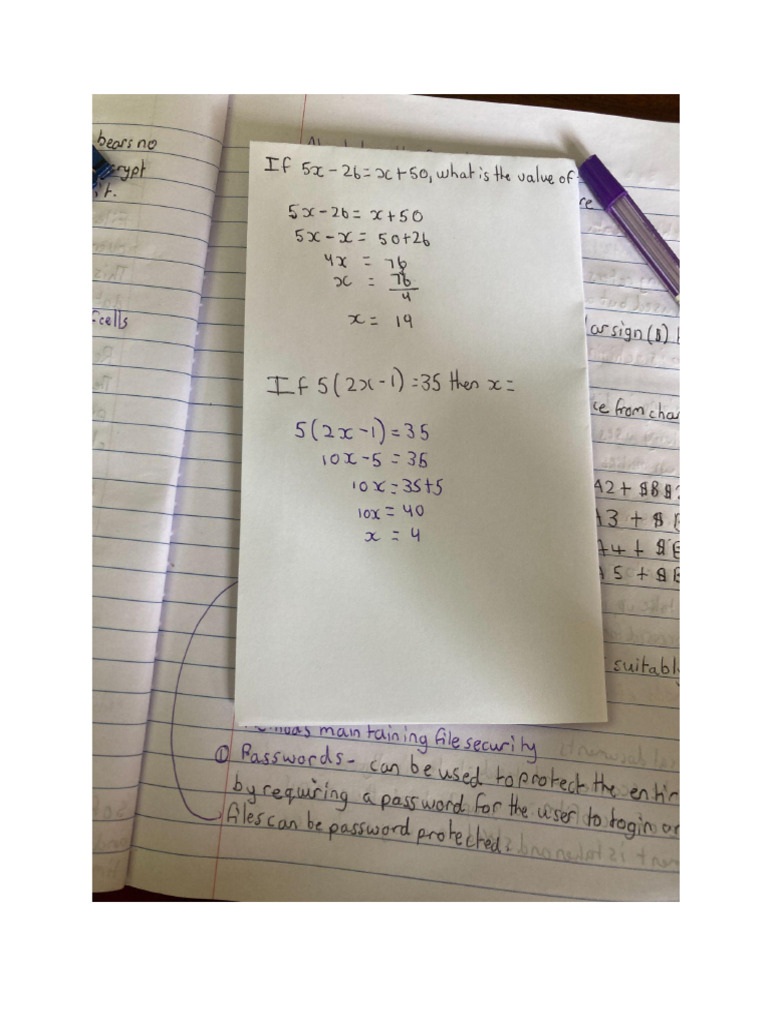 bears no
crypt
it.
cells
If 5x - 26 = x + 50, what is the value of
5x - 26 = x + 50
5x - x = 50 + 26
4x = 76
x = 76
4
x = 19
If 5(2x - 1) = 35 then x =
5(2x - 1) = 35
10x - 5 = 35
10x = 35 + 5
10x = 40
x = 4
ce
lar sign ($)
ce from cha
A2 + $B$
A3 + $
A4 + $B
A5 + $B
suitabl
maintaining file security
① Passwords - can be used to protect the entir
by requiring a password for the user to login or
files can be password protected.